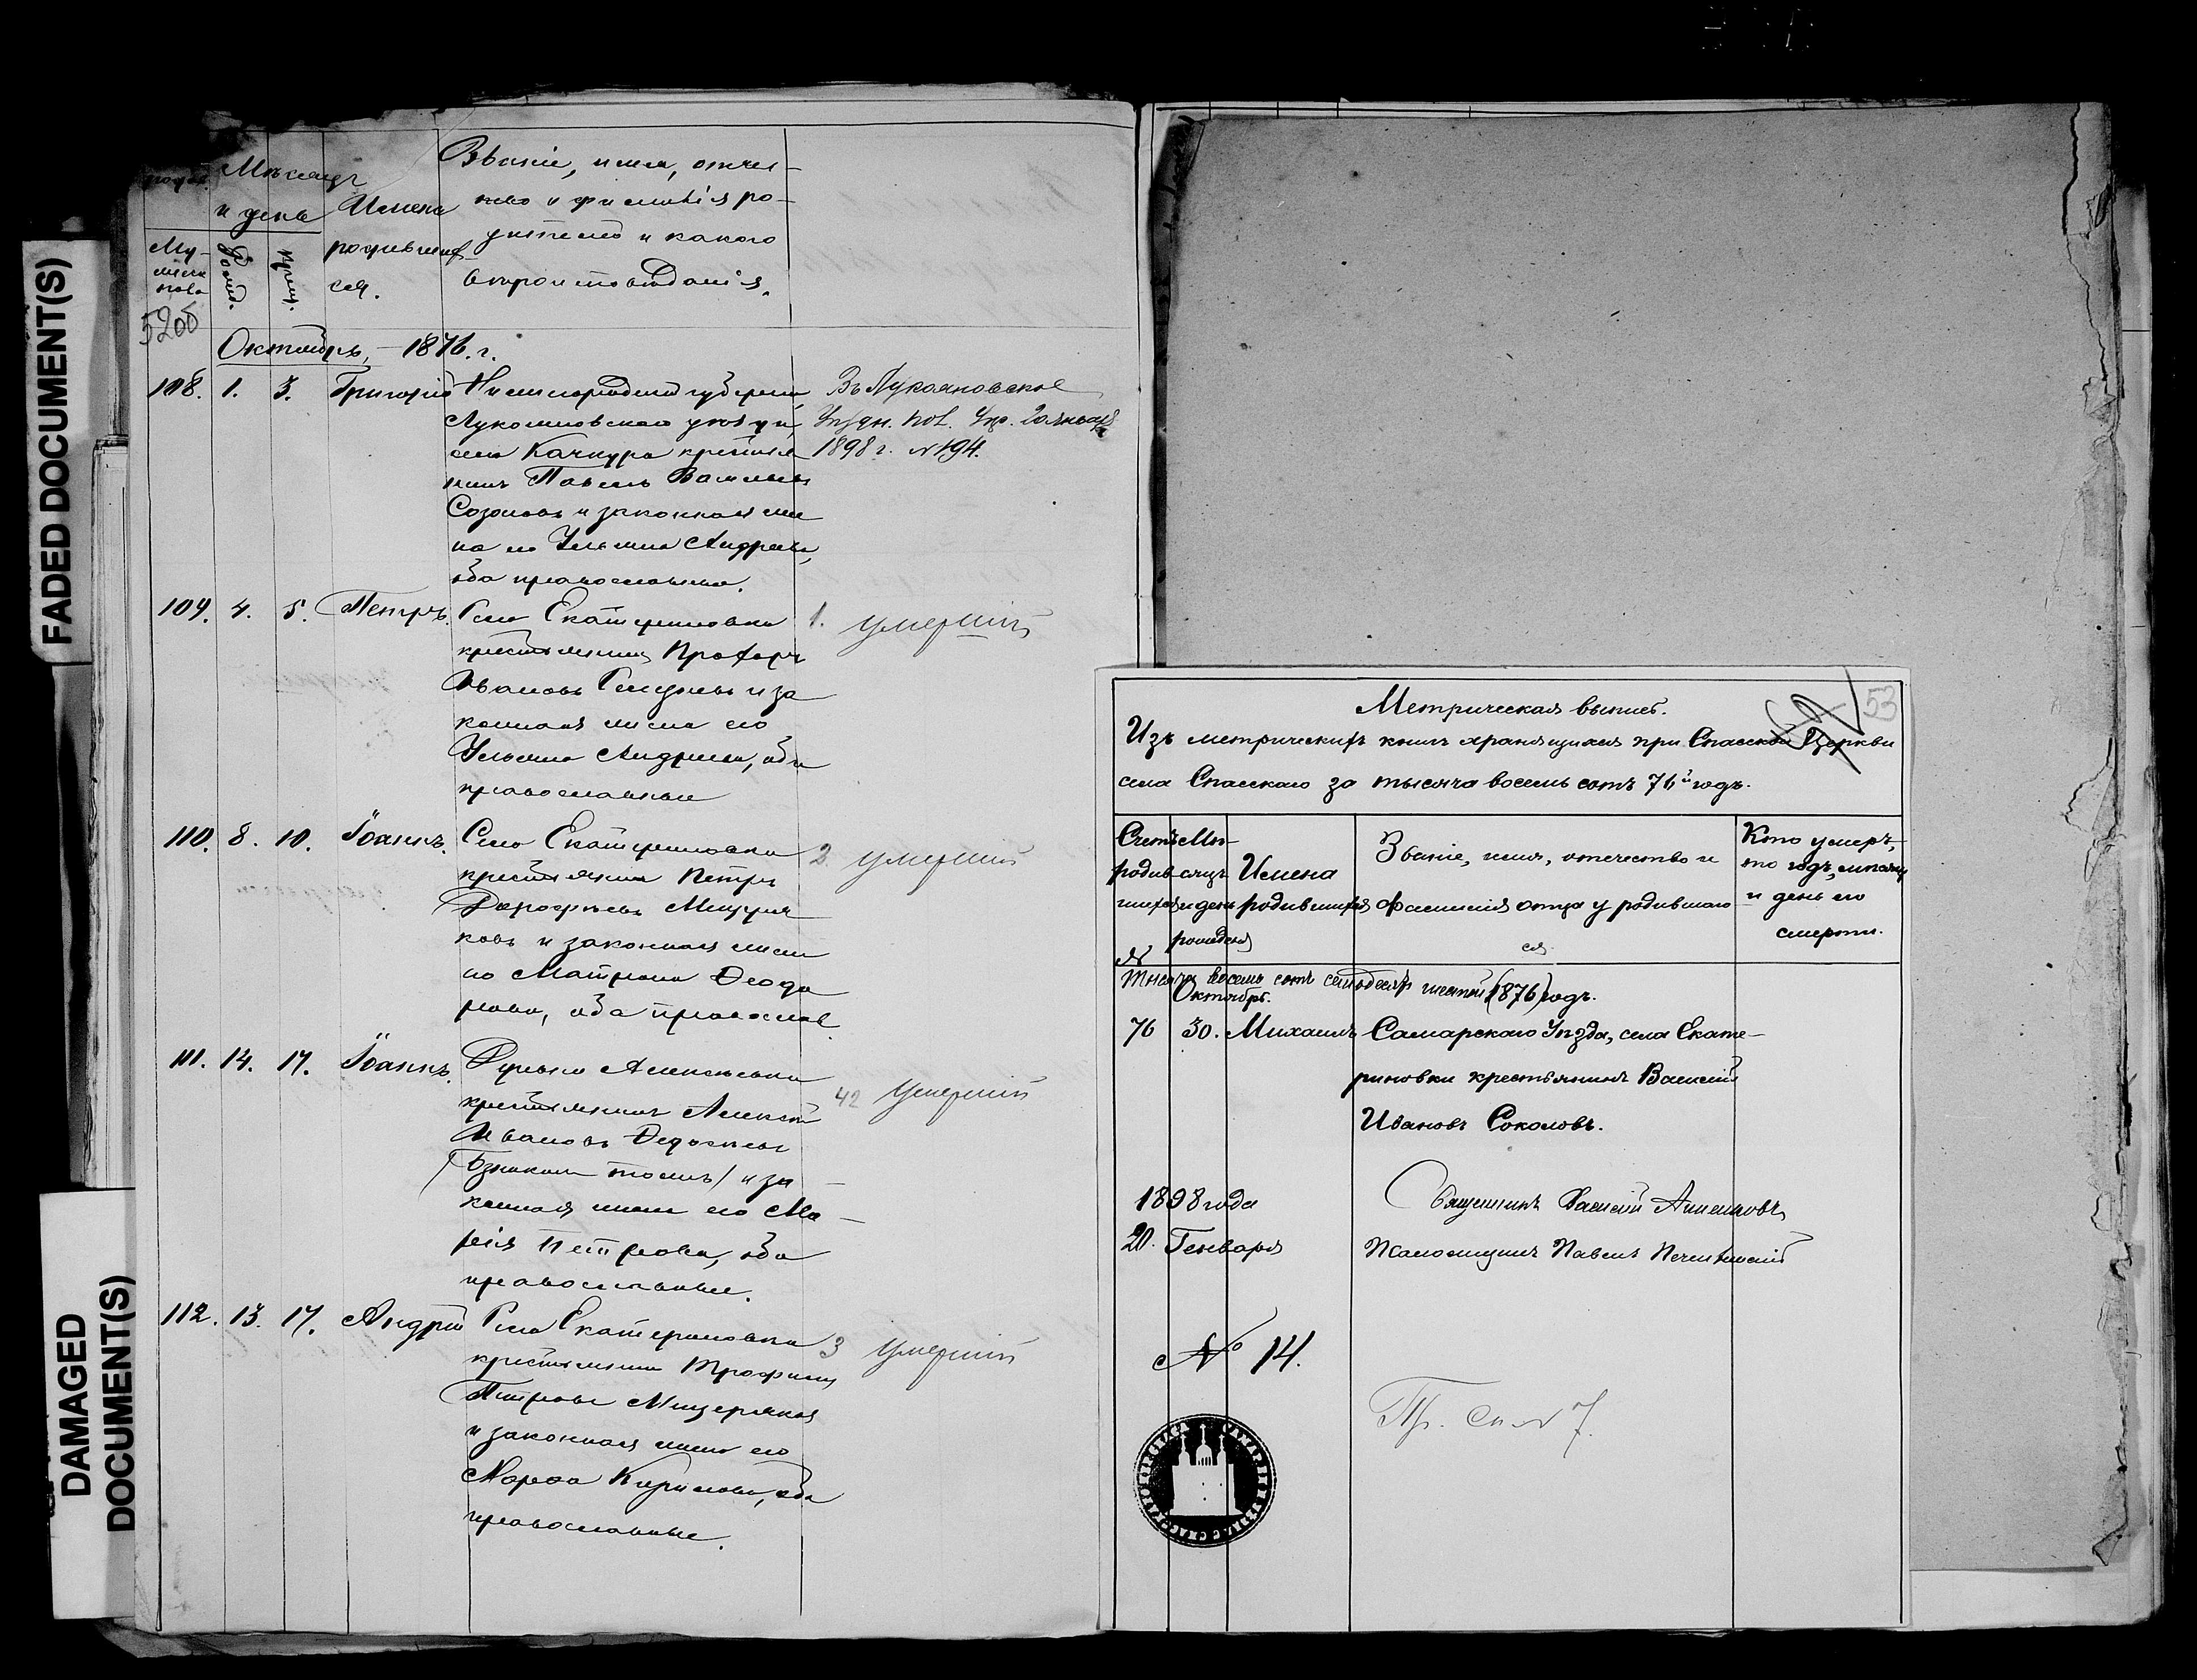 FADED DOCUMENT(S)
DAMAGED
DOCUMENT(S)
Мѣсяцъ
и день
Му-
жеска
пола
Рожд.
Крещ.
Имена
родивших
ся.
Званіе, имя, отчес-
тво и фамилія ро-
дителей и какого
вѣроисповѣданія.
52об
Октябрь, - 1876. г.
108. 1. 3. Григорій Нижегородской губерніи,
Лукояновскаго уѣзда,
села Качкура крестья
нинъ Павелъ Васильевъ
Созоновъ и законная же
на его Ульяна Андреева,
оба православные.
Въ Лукояновское
Уѣздн. пов. Упр. 20 января
1898 г. № 194.
109. 4. 5. Петръ. Села Екатериновки
крестьянинъ Прохоръ
Ивановъ и за
конная жена его
Ульяна Андреева, оба
православные
1. умершій
110. 8. 10. Іоаннъ. Села Екатериновки
крестьянинъ Петръ
Дорофѣевъ Мещеря
ковъ и законная жена
его Матрона Ѳеодо
рова, оба православ.
2 умершій
111. 14. 17. Іоаннъ. Алексѣевки
крестьянинъ Алексѣй
Ивановъ
и за
конная жена его Ма-
рія Петрова, оба
православные.
42 умершій
112. 13. 17. Андрей Села Екатериновки
крестьянинъ Трофимъ
Петровъ Мещеряковъ
и законная жена его
Марѳа Кирилова, оба
православные.
3 умершій
53
Метрическая выпись.
Изъ метрическихъ книгъ хранящихся при Спасской Церкви
села Спасскаго за тысяча восемь сотъ 76й годъ.
Счетъ
родив
шихся
№
Мѣ-
сяцъ
и день
рожденія
Имена
родившихся
Званіе, имя, отечество и
Фамилія отца у родившаго
ся
Кто умеръ,
то годъ, мѣсяцъ
и день его
смерти.
Тысяча восемь сотъ семьдесятъ шестой (1876) годъ.
Октябрь.
76 30. Михаилъ Самарскаго Уѣзда, села Екате-
риновки крестьянинъ Василій
Ивановъ Соколовъ.
1898 года
20. Генваря
Священникъ Василій
Псаломщикъ Павелъ
№ 14.
Пр. сп. № 7.